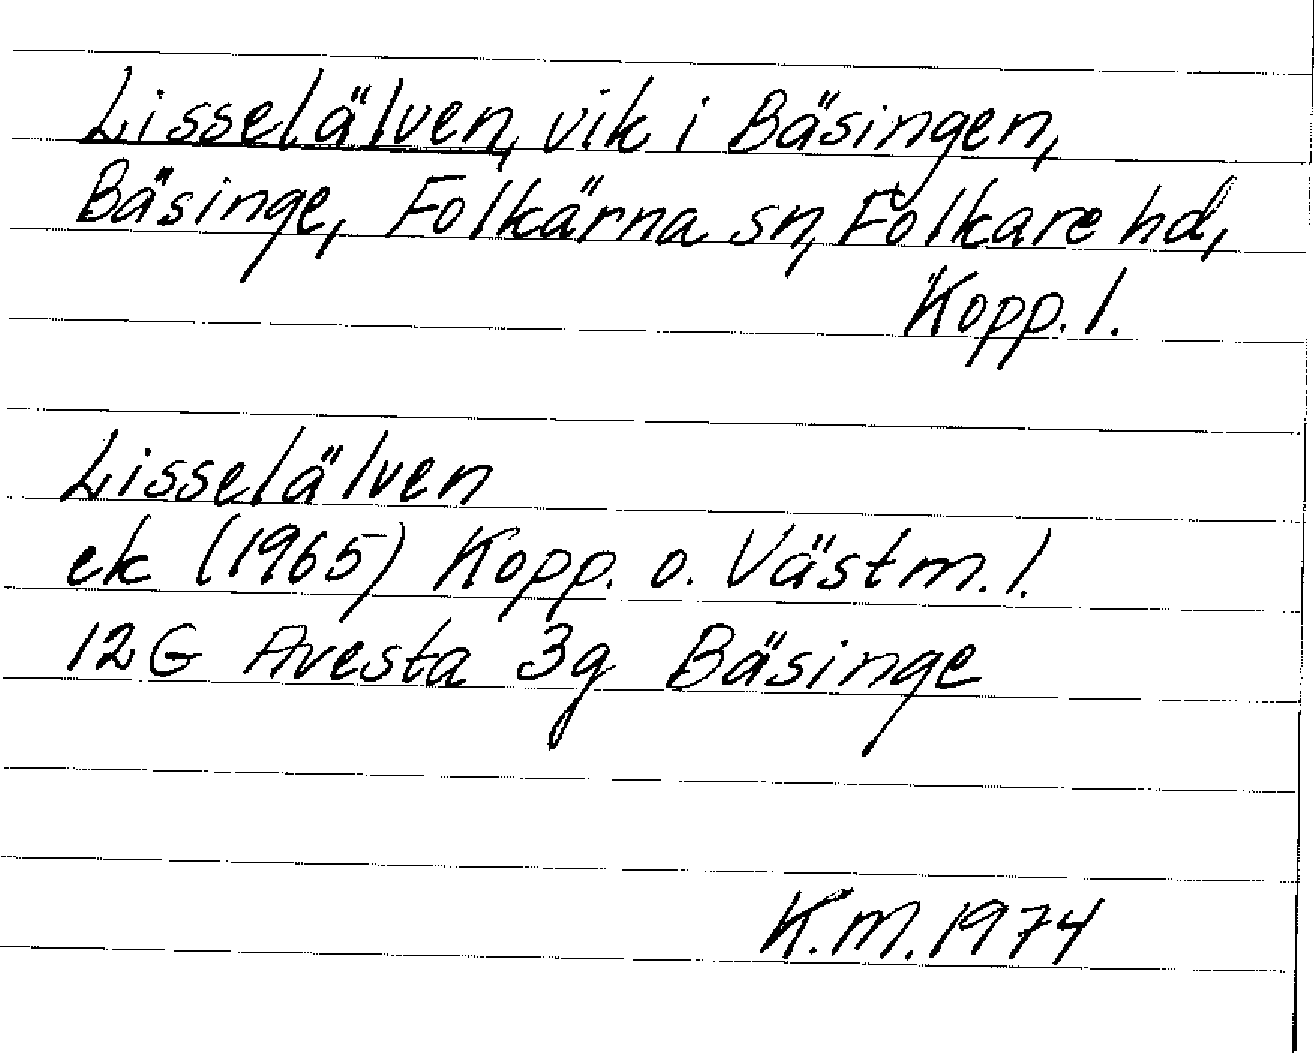 Lisselälven, vik i Bäsingen,
Bäsinge, Folkärna sn, Folkare hd,
Kopp. l.
Lisselälven
ek (1965) Kopp. o. Västm. l.
12G Avesta 3g Bäsinge
K.M. 1974